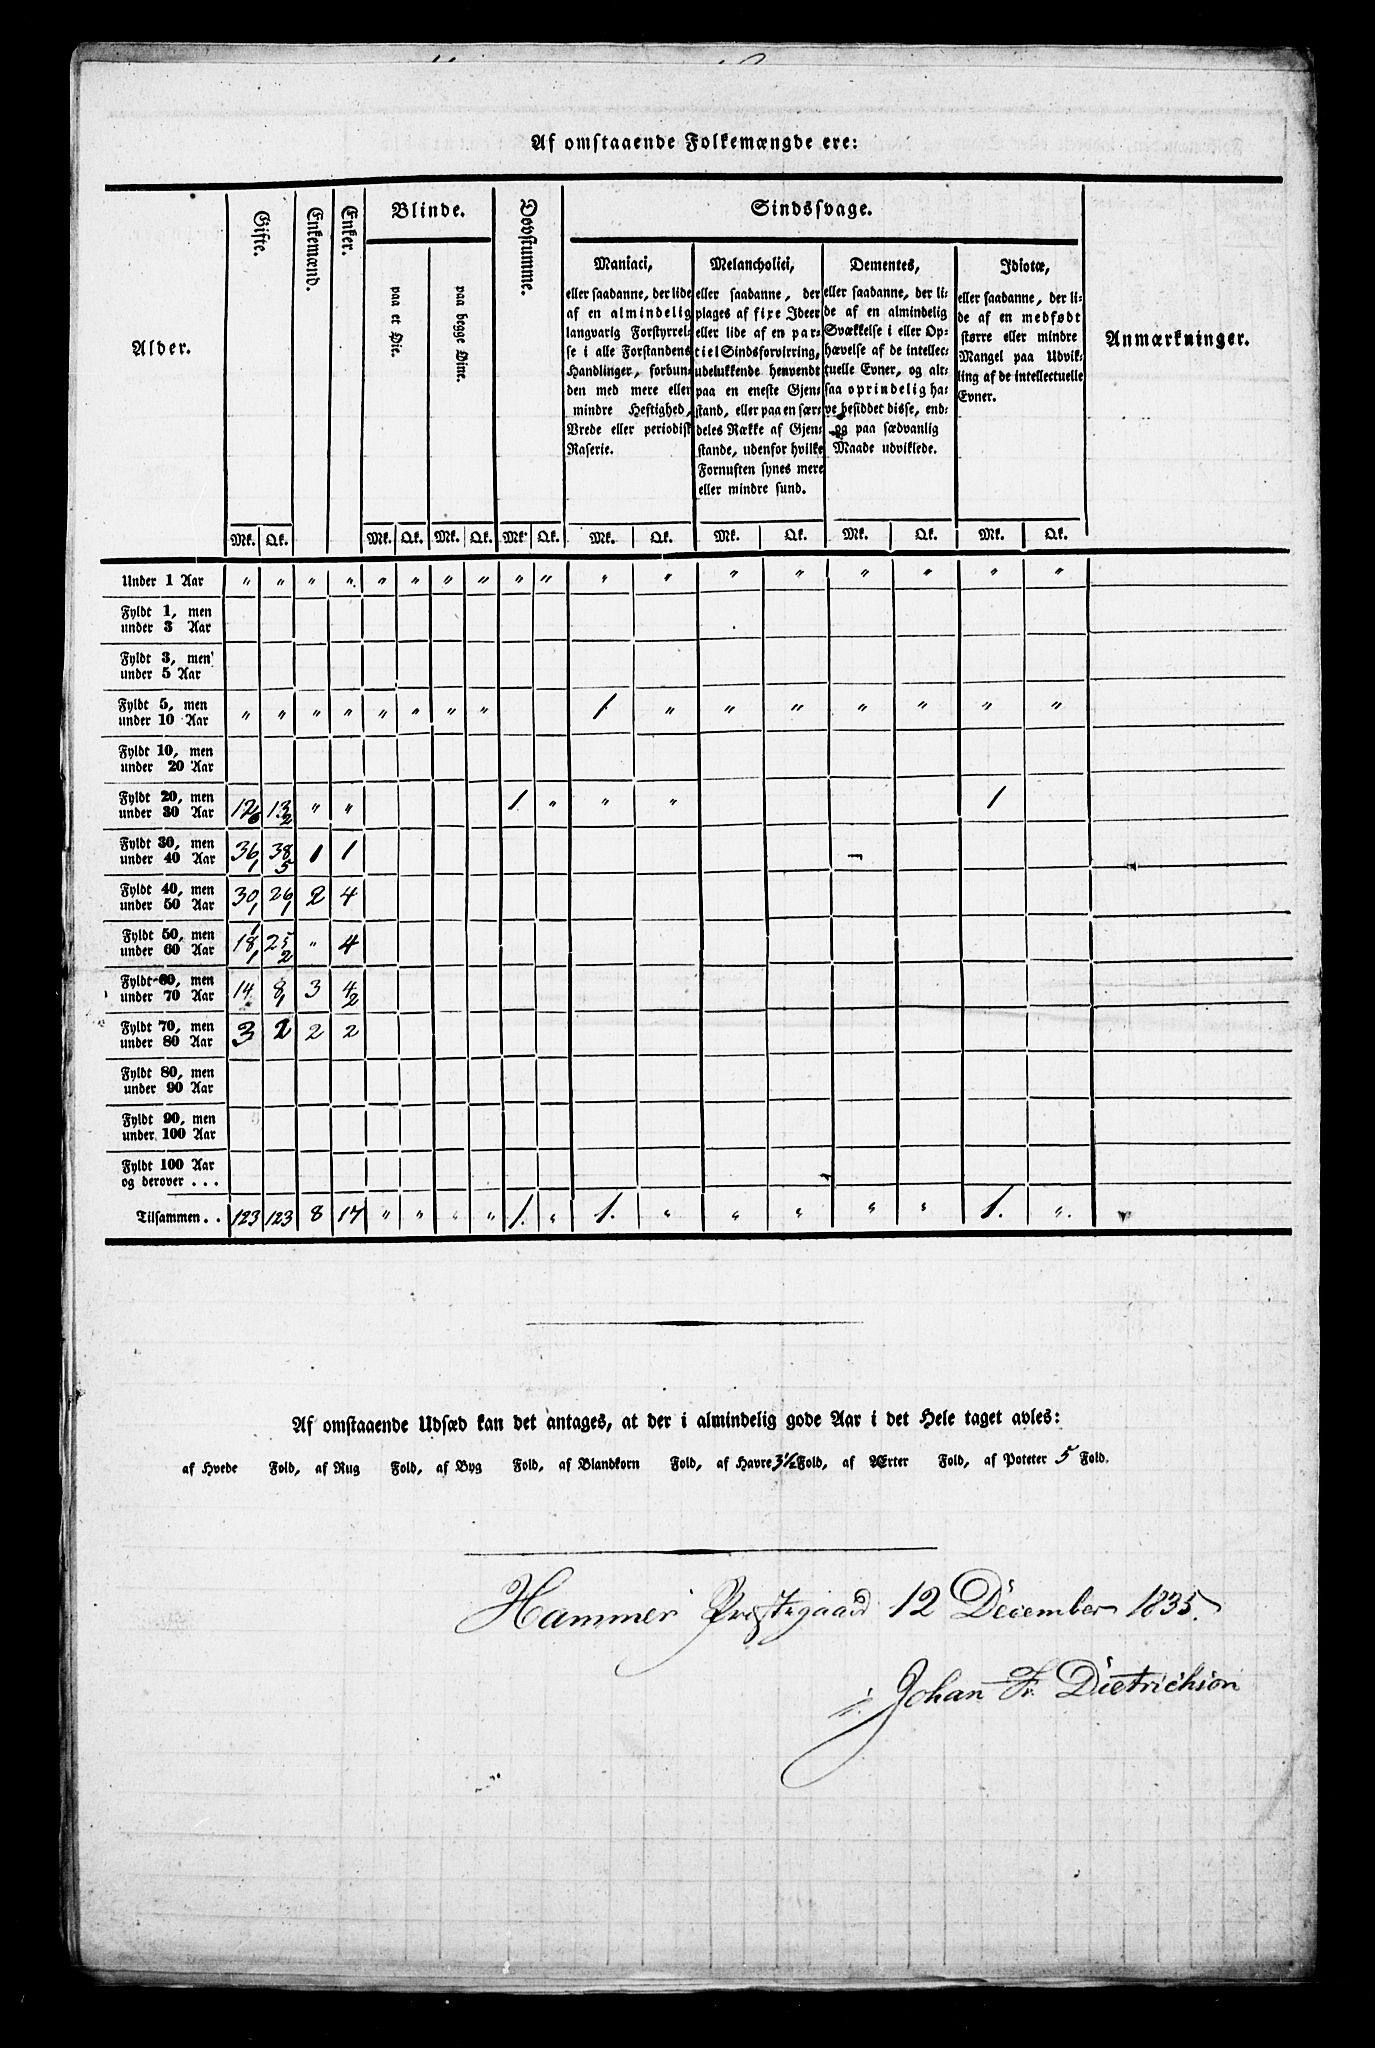 Af omstaaende Folkemængde ere:
Alder.
Gifte.
Enkemænd.
Enker.
Blinde.
paa et Øie.
paa begge Øine.
Døvstumme.
Sindssvage.
Maniaci,
eller saadanne, der lide
af en almindelig
langvarig Forstyrrel-
se i alle Forstandens
Handlinger, forbun-
den med mere eller
mindre Heftighed,
Vrede eller periodisk
Raserie.
Melancholici,
eller saadanne, der
plages af fixe Ideer
eller lide af en par-
tiel Sindsforvirring,
udelukkende henvendt
paa en eneste Gjen-
stand, eller paa en sær-
deles Række af Gjen-
stande, udenfor hvilke
Fornuften synes mere
eller mindre sund.
Dementes,
eller saadanne, der li-
de af en almindelig
Svækkelse i eller Op-
hævelse af de intellec-
tuelle Evner, og alt-
saa oprindelig ha-
ve besiddet disse, end-
og paa sædvanlig
Maade udviklede.
Idiotæ,
eller saadanne, der li-
de af en medfødt
større eller mindre
Mangel paa Udvik-
ling af de intellectuelle
Evner.
Anmærkninger.
Mk. Qk. Mk. Qk. Mk. Qk. Mk. Qk. Mk. Qk. Mk. Qk. Mk. Qk. Mk. Qk.
Under 1 Aar " " " " " " " " " " " " " " " " " "
Fyldt 1, men
under 3 Aar
Fyldt 3, men
under 5 Aar
Fyldt 5, men
under 10 Aar " " " " " " " " 1 " " " " " " "
Fyldt 10, men
under 20 Aar
Fyldt 20, men
under 30 Aar 12 13 " " 1. " " " 1
6 2
Fyldt 30, men
under 40 Aar 36 38 1 1
1 5
Fyldt 40, men
under 50 Aar 30 26 2 4
1 1
Fyldt 50, men
under 60 Aar 18 25 " 4
1 2
Fyldt 60, men
under 70 Aar 14 8 3 4
1 2
Fyldt 70, men
under 80 Aar 3 2 2 2
Fyldt 80, men
under 90 Aar
Fyldt 90, men
under 100 Aar
Fyldt 100 Aar
og derover . . .
Tilsammen . . 123 123 8 17 " " " " 1. " 1. " " " " " 1. ".
Af omstaaende Udsæd kan det antages, at der i almindelig gode Aar i det Hele taget avles:
af Hvede Fold, af Rug Fold, af Byg Fold, af Blandkorn Fold, af Havre 3½ Fold, af Ærter Fold, af Poteter 5 Fold.
Hammer Præstegaard 12 December 1835.
Johan Fr. Dietrichson